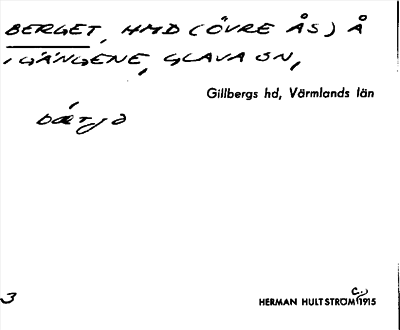 BERGET, HMD (ÖVRE ÅS) Å
I GÄNGENE, GLAVA SN,
Gillbergs hd, Värmlands län
3
HERMAN HULTSTRÖM c.) 1915